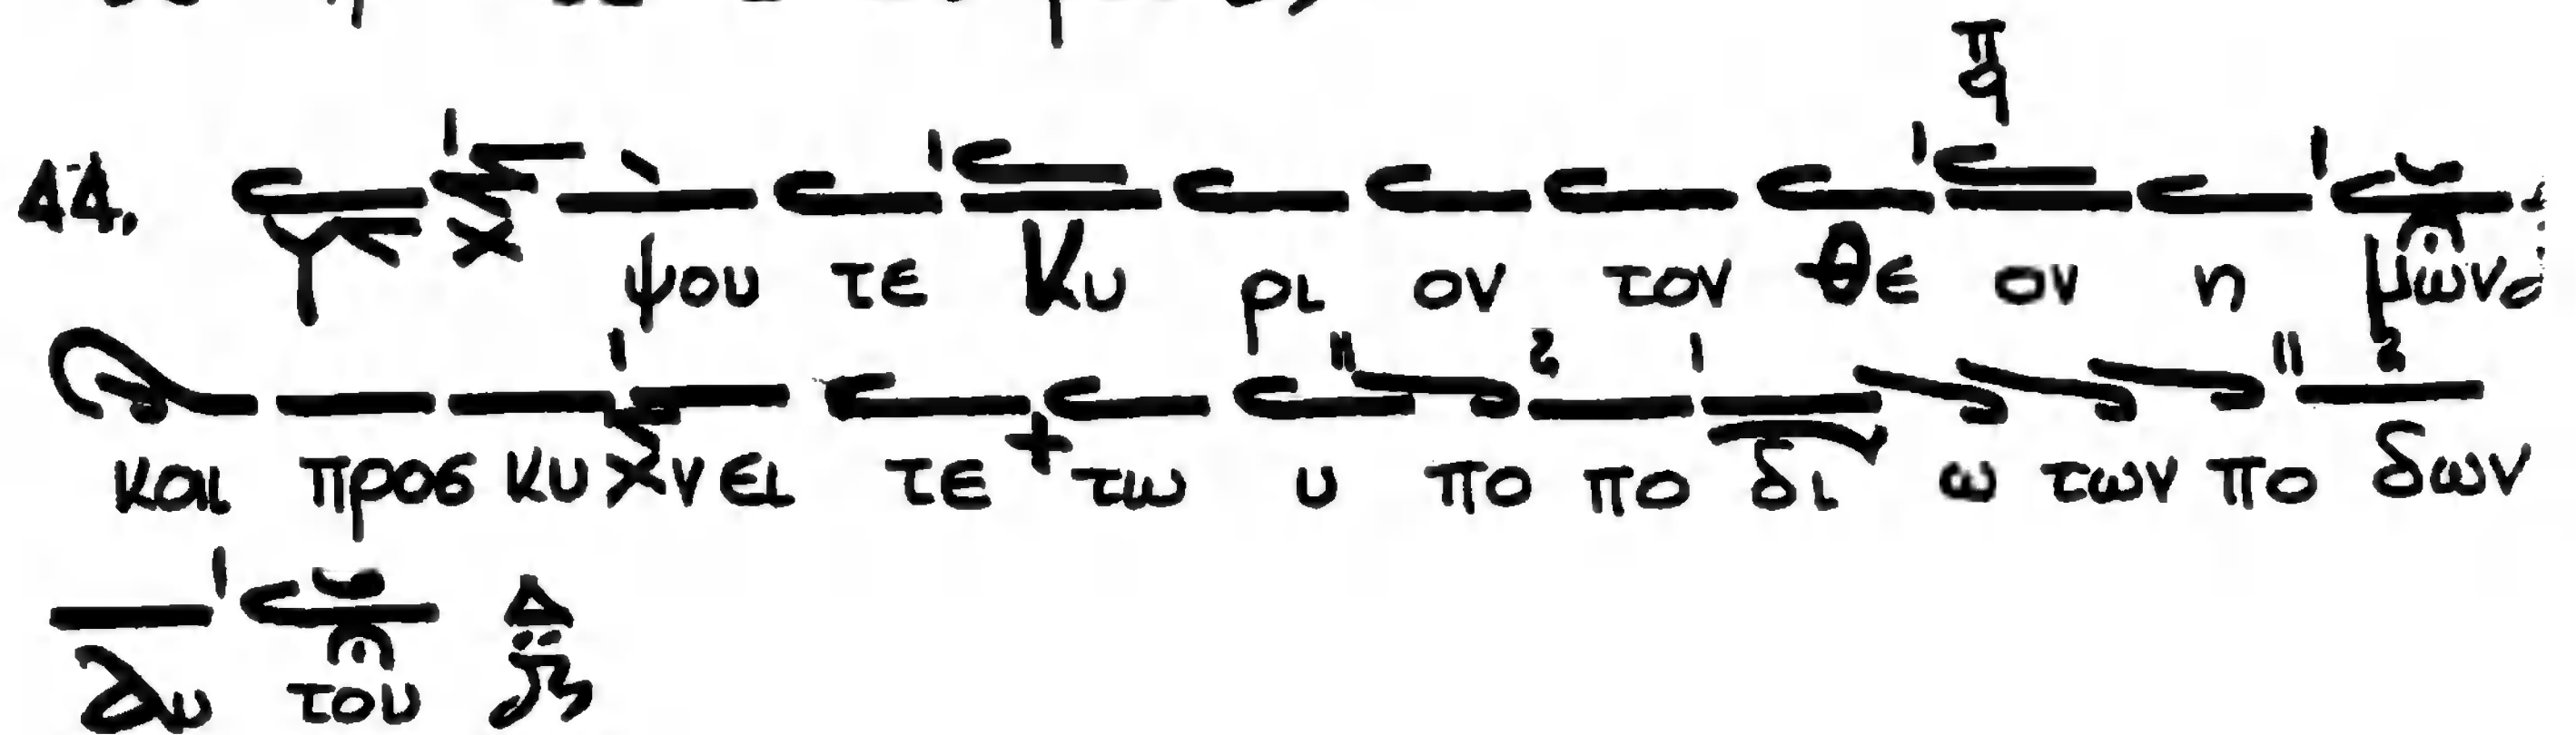 44. Υ ψου τε Κυ ρι ον τον θε ον η μων
και προσ κυ νει τε τω υ πο πο δι ω των πο δων
αυ του